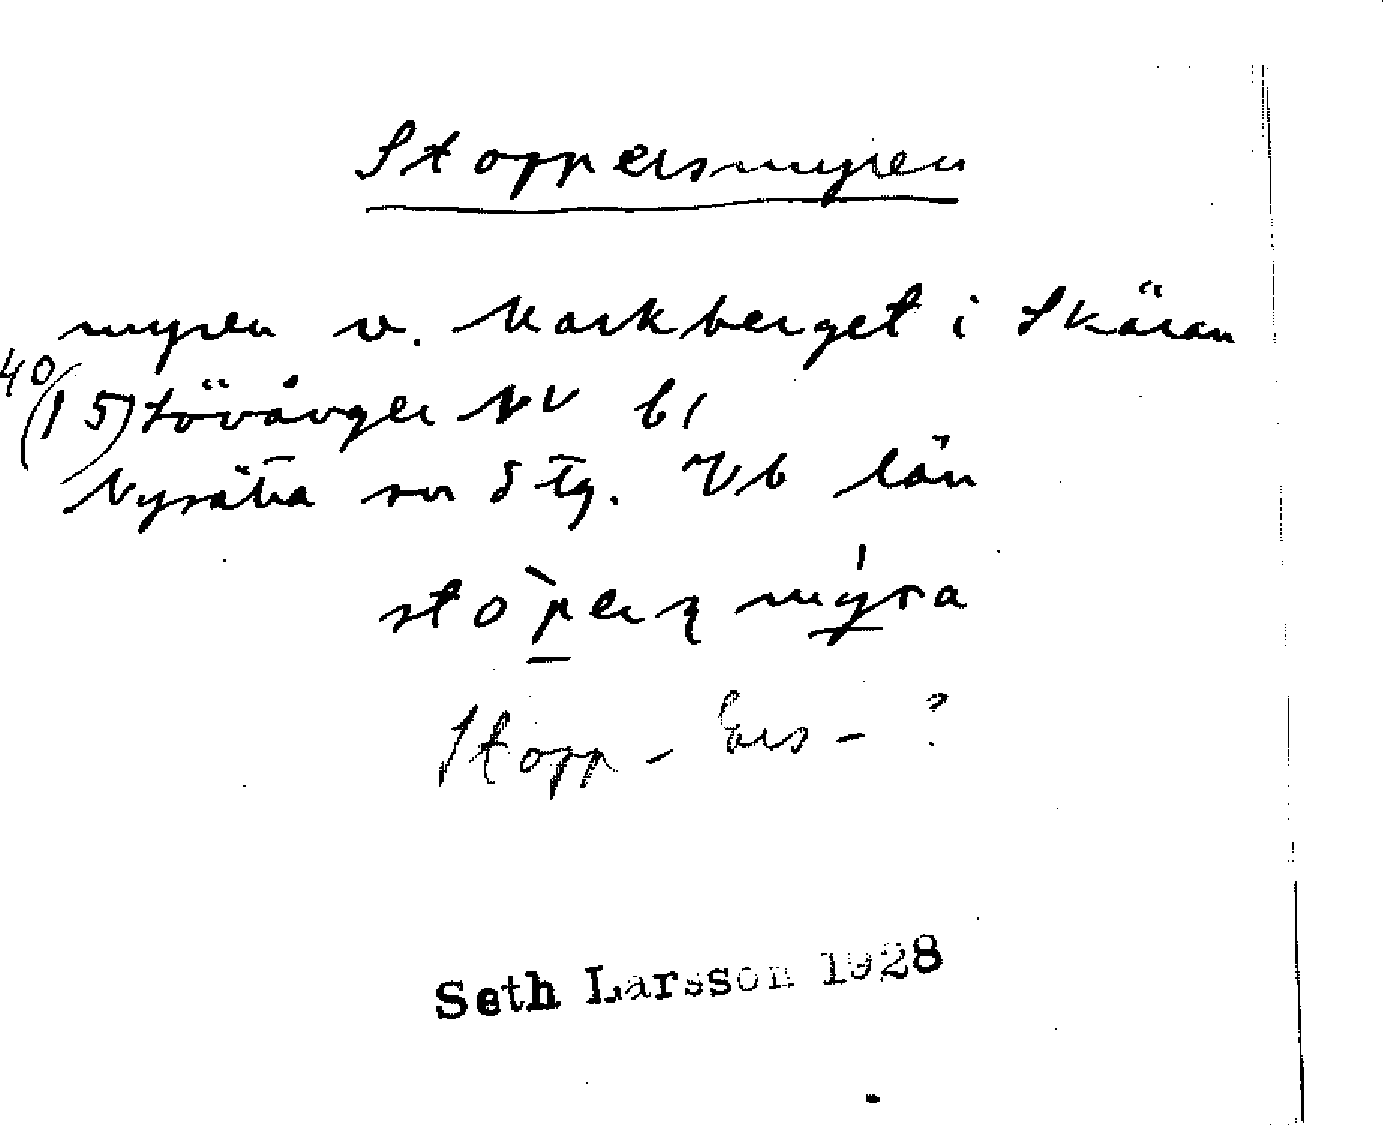 Stoppersmyren
myren v. Markberget i Skäran
40
(15) Lövånger NV bl
Nysätra sn o tg. Vb län
stòpeʂ mýra
Stopp-Ers-?
Seth Larsson 1928